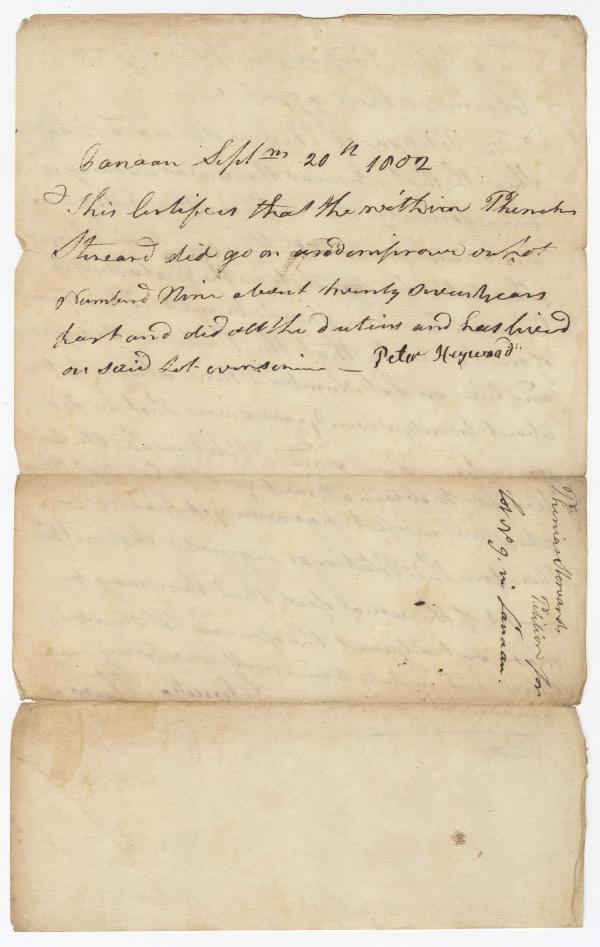 Canaan Septm 20th 1802
This Certifies that the within Phinehas
Steward did go on and improve on Lot
Numberd Nine about twenty seven years
past and did all the duties and has lived
on said Lot ever sinc — Peter Heywood
Steward's
Petition for
Lot No 9. in Canaan.